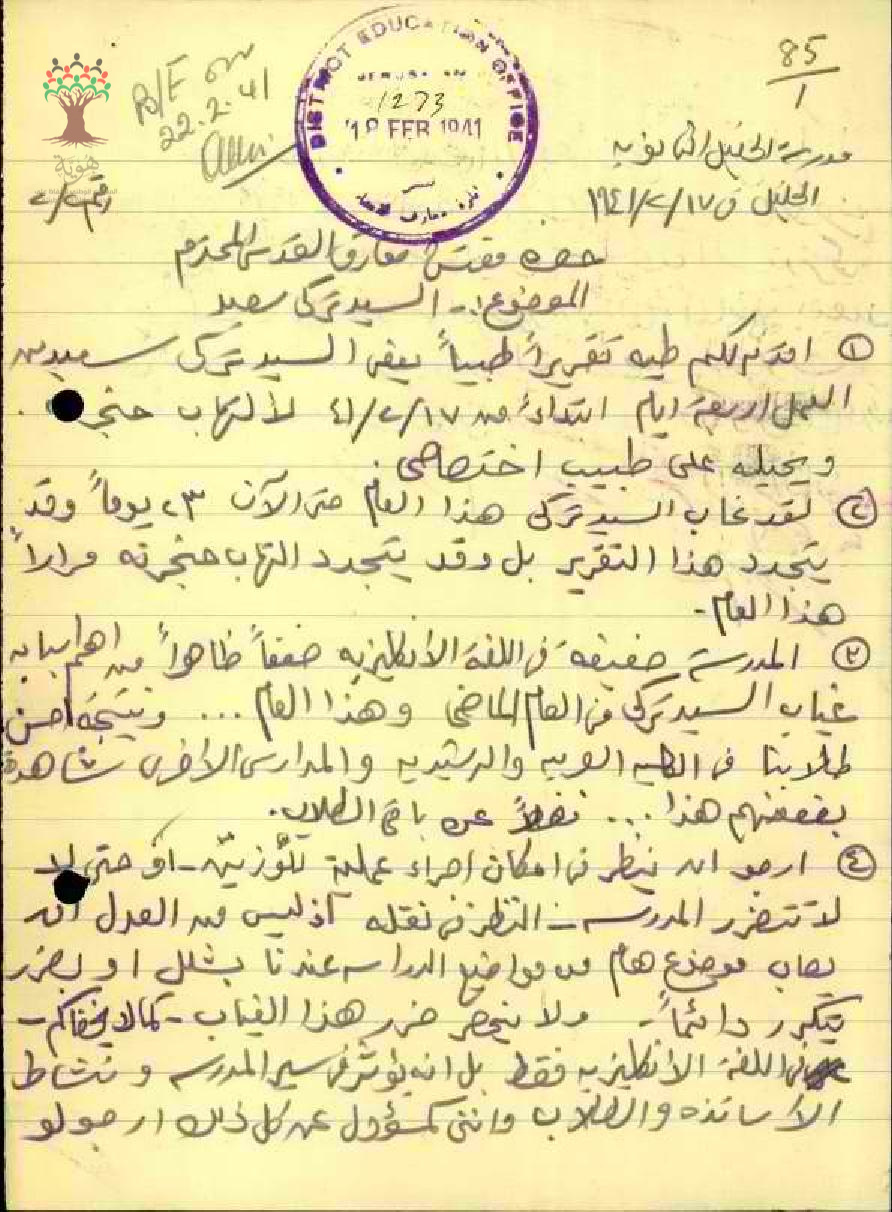 85
1
B/E on
22.2.41
DISTRICT EDUCATION OFFICE
JERUSALEM
1273
18 FEB 1941
هوية
مدرسة الخليل الثانوية
الخليل في ١٧/٢/١٩٤١
رقم ٢/٢
حضرة مفتش معارف القدس المحترم
الموضوع :- السيد تركي سعيد
١ اقدم لكم طيه تقريراً طبياً يعفي السيد تركي سعيد من
العمل اربعة ايام ابتداءً من ١٧/٢/٤١ لالتهاب
ويحيله على طبيب اختصاصي.
٢ لقد غاب السيد تركي هذا العام حتى الآن ٢٣ يوماً وقد
يتجدد هذا التقرير بل وقد يتجدد التهاب حنجرته مراراً
هذا العام.
٣ المدرسة ضعيفة في اللغة الانكليزية ضعفاً ظاهراً من اهم اسبابه
غياب السيد تركي في العام الماضي وهذا العام ... ونتيجة احسن
طلابنا في الكلية العربية والرشيدية والمدارس الاخرى شاهدة
بضعفهم هذا ... فضلاً عن باقي الطلاب.
٤ ارجو ان ينظر في امكان اجراء عملية - او حتى
لا تتضرر المدرسة - النظر في نقله اذ ليس من العدل ان
يصاب موضوع هام من مواضيع الدراسة عندنا بشلل او بضرر
يتكرر دائماً - ولا ينحصر ضرر هذا الغياب - كما لا يخفاكم -
في اللغة الانكليزية فقط بل انه يؤثر في سير المدرسة ونشاط
الأساتذة والطلاب وانني كمسؤول عن كل ذلك ارجو لو